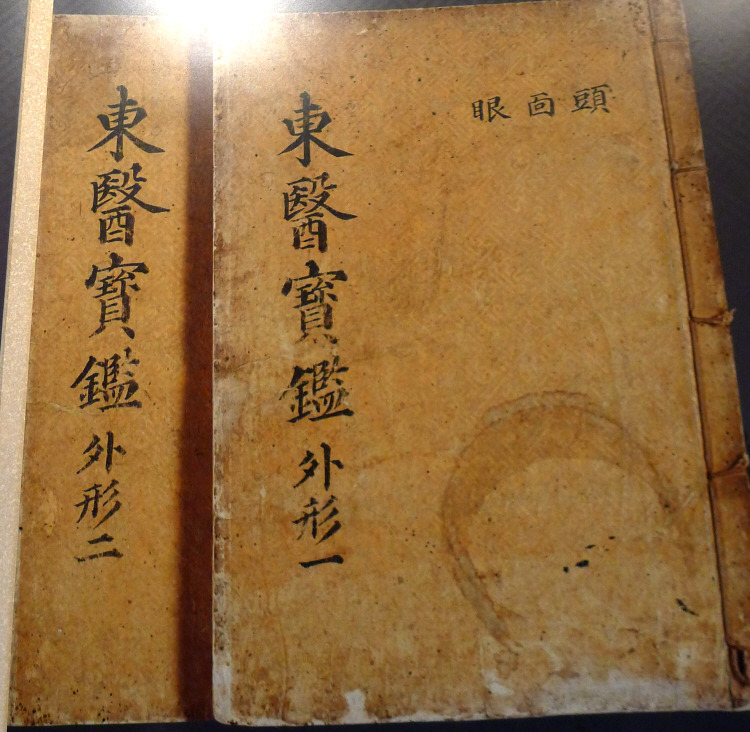 頭面眼
東醫寶鑑 外形一
東醫寶鑑 外形二